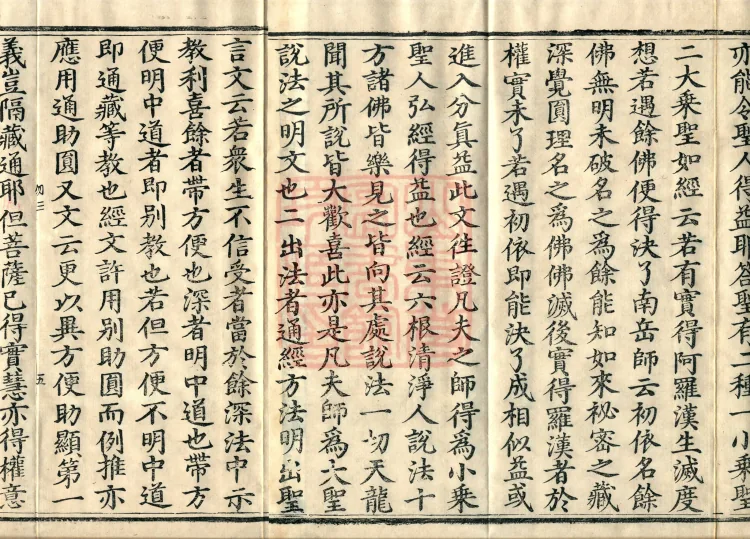 亦能令聖人得益耶答聖有二種一小乘聖
二大乘聖如經云若有實得阿羅漢生滅度
想若遇餘佛便得決了南岳師云初依名餘
佛無明未破名之為餘能知如來祕密之藏
深覺圓理名之為佛佛滅後實得羅漢者於
權實未了若遇初依即能決了成相似益或
進入分真益此文往證凡夫之師得為小乘
聖人弘經得益也經云六根清淨人說法十
方諸佛皆樂見之皆向其處說法一切天龍
聞其所說皆大歡喜此亦是凡夫師為大聖
說法之明文也二出法者通經方法明出聖
言文云若衆生不信受者當於餘深法中示
教利喜餘者帶方便也深者明中道也帶方
便明中道者即別教也若但方便不明中道
即通藏等教也經文許用別助圓而例推亦
應用通助圓又文云更以異方便助顯第一
義豈隔藏通耶但菩薩已得實慧亦得權意
加三
五